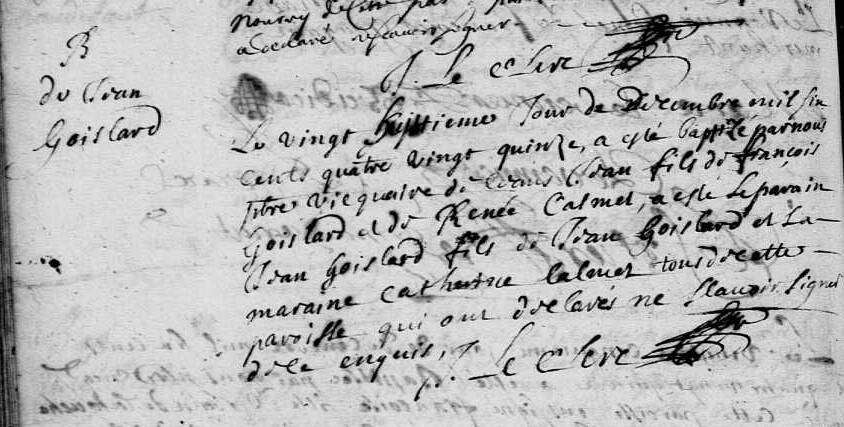 a declaré ne scavoir signer
J. Le Clerc
B
de Jean
Goislard
Le vingt septieme Jour de Decembre mil six
cents quatre vingt quinze, a esté baptizé par nous
ptre vicquaire de Jean fils de françois
Goislard et de Renée Calmel, a este Le parain
Jean Goislard fils de Jean Goislard et La
maraine Catherine Calmel tous de cette
paroisse qui ont declarés ne sçavoir signer
de ce enquis, J. Le Clerc